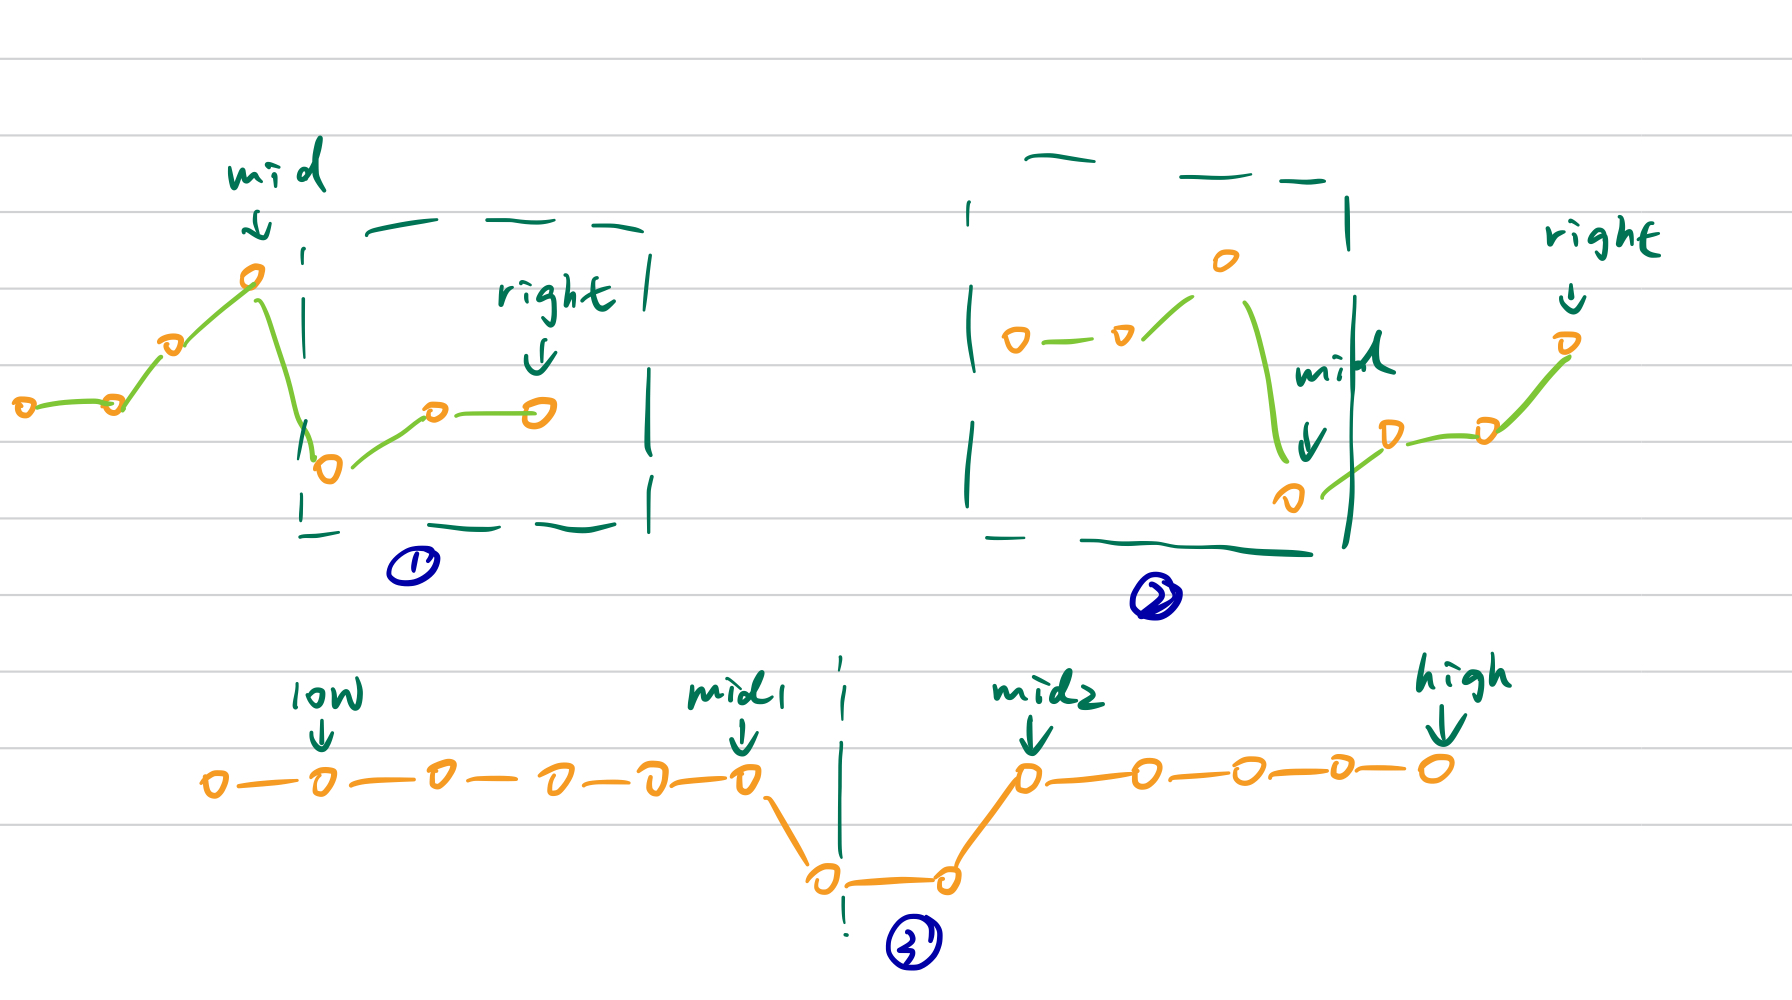 mid
right
①
mid
right
②
low
mid1
mid2
high
③